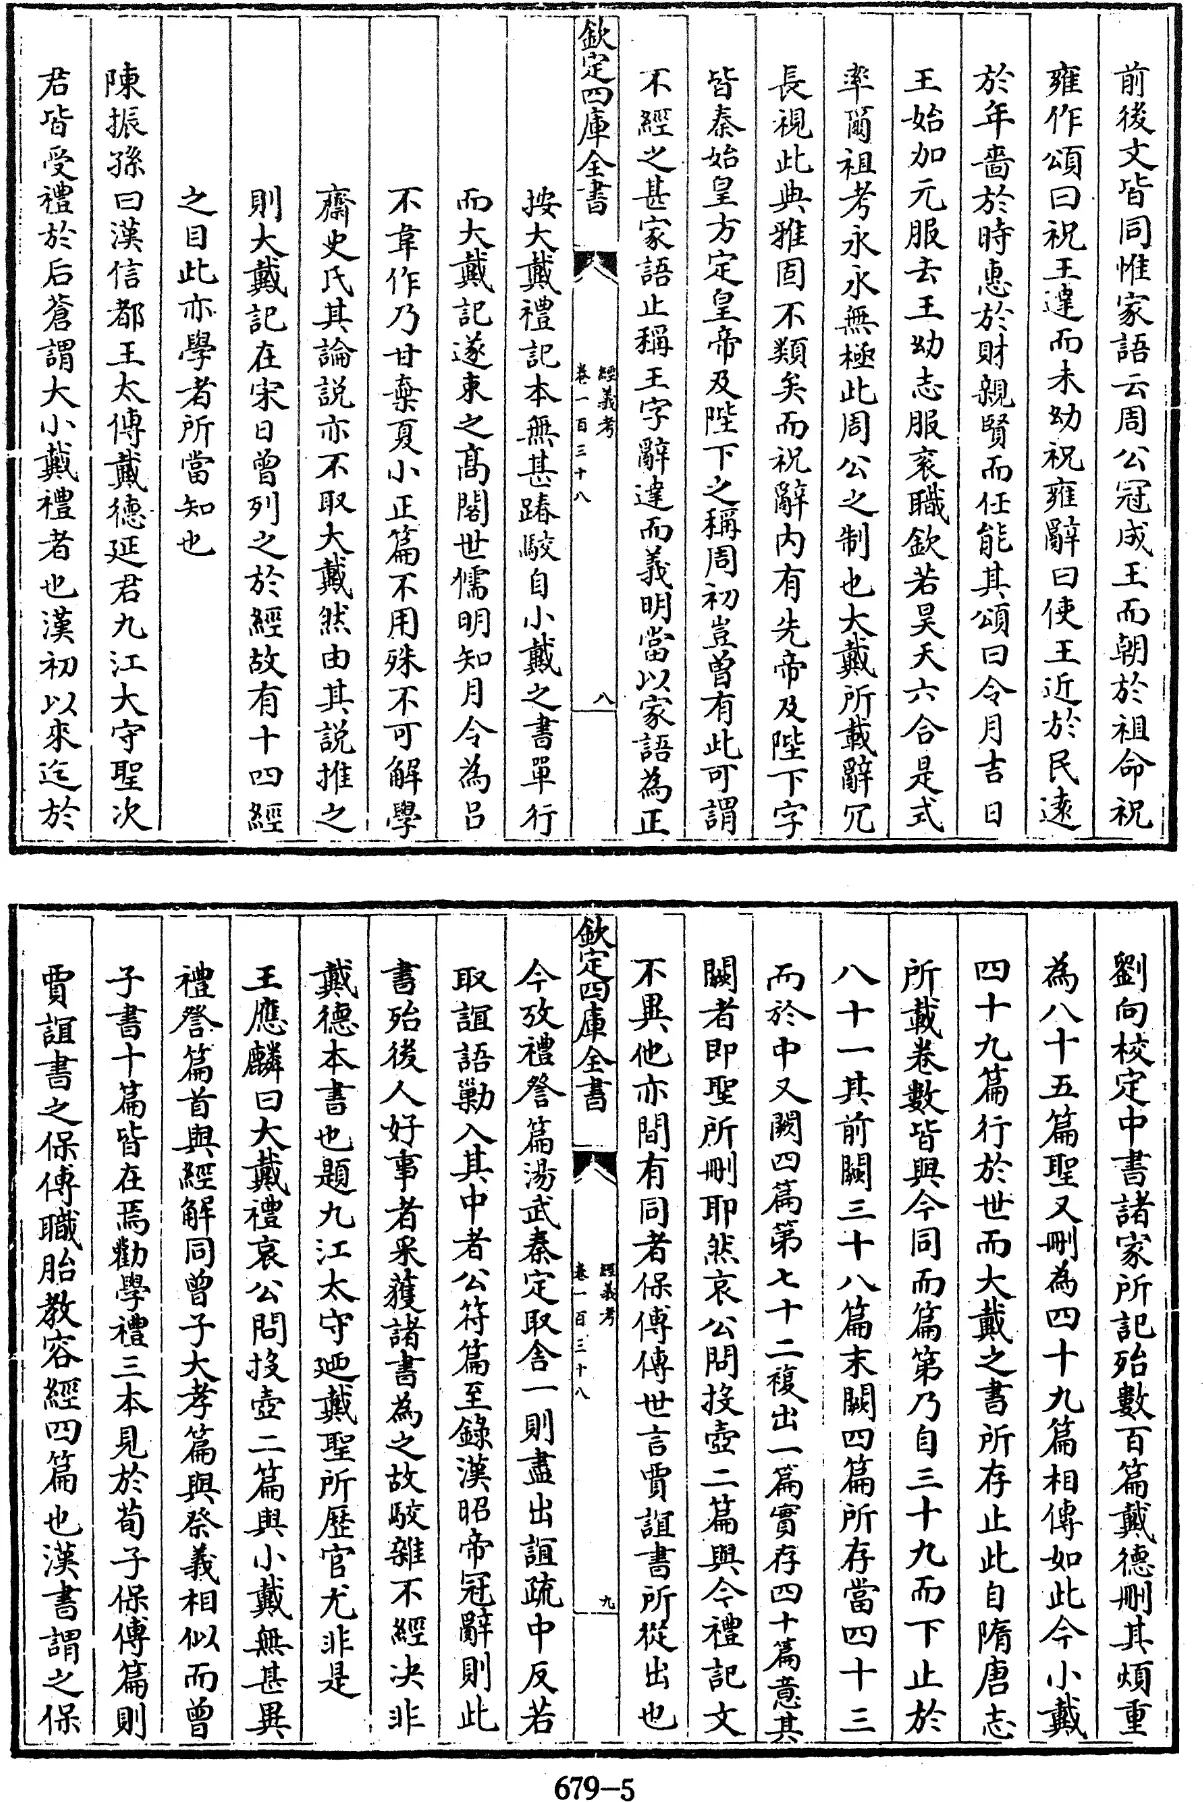 前後文皆同惟家語云周公冠成王而朝於祖命祝
雍作頌曰祝王達而未幼祝雍辭曰使王近於民遠
於年嗇於時惠於財親賢而任能其頌曰令月吉日
王始加元服去王幼志服衮職欽若昊天六合是式
率爾祖考永永無極此周公之制也大戴所載辭冗
長視此典雅固不類矣而祝辭内有先帝及陛下字
皆秦始皇方定皇帝及陛下之稱周初豈曾有此可謂
不經之甚家語止稱王字辭達而義明當以家語為正
欽定四庫全書
經義考
卷一百三十八
八
按大戴禮記本無甚踳駮自小戴之書單行
而大戴記遂束之髙閣世儒明知月令為吕
不韋作乃甘棄夏小正篇不用殊不可解學
齋史氏其論説亦不取大戴然由其説推之
則大戴記在宋日曾列之於經故有十四經
之目此亦學者所當知也
陳振孫曰漢信都王太傅戴德延君九江大守聖次
君皆受禮於后蒼謂大小戴禮者也漢初以來迄於
劉向校定中書諸家所記殆數百篇戴德刪其煩重
為八十五篇聖又刪為四十九篇相傳如此今小戴
四十九篇行於世而大戴之書所存止此自隋唐志
所載卷數皆與今同而篇第乃自三十九而下止於
八十一其前闕三十八篇末闕四篇所存當四十三
而於中又闕四篇第七十二複出一篇實存四十篇意其
闕者即聖所刪耶然哀公問投壺二篇與今禮記文
不異他亦間有同者保傅傳世言賈誼書所從出也
欽定四庫全書
經義考
卷一百三十八
九
今攷禮詧篇湯武秦定取舍一則盡出誼疏中反若
取誼語勦入其中者公符篇至錄漢昭帝冠辭則此
書殆後人好事者采獲諸書為之故駮雜不經决非
戴德本書也題九江太守廼戴聖所歴官尤非是
王應麟曰大戴禮哀公問投壺二篇與小戴無甚異
禮詧篇首與經解同曾子大孝篇與祭義相似而曾
子書十篇皆在焉勸學禮三本見於荀子保傅篇則
賈誼書之保傅職胎教容經四篇也漢書謂之保
679-5